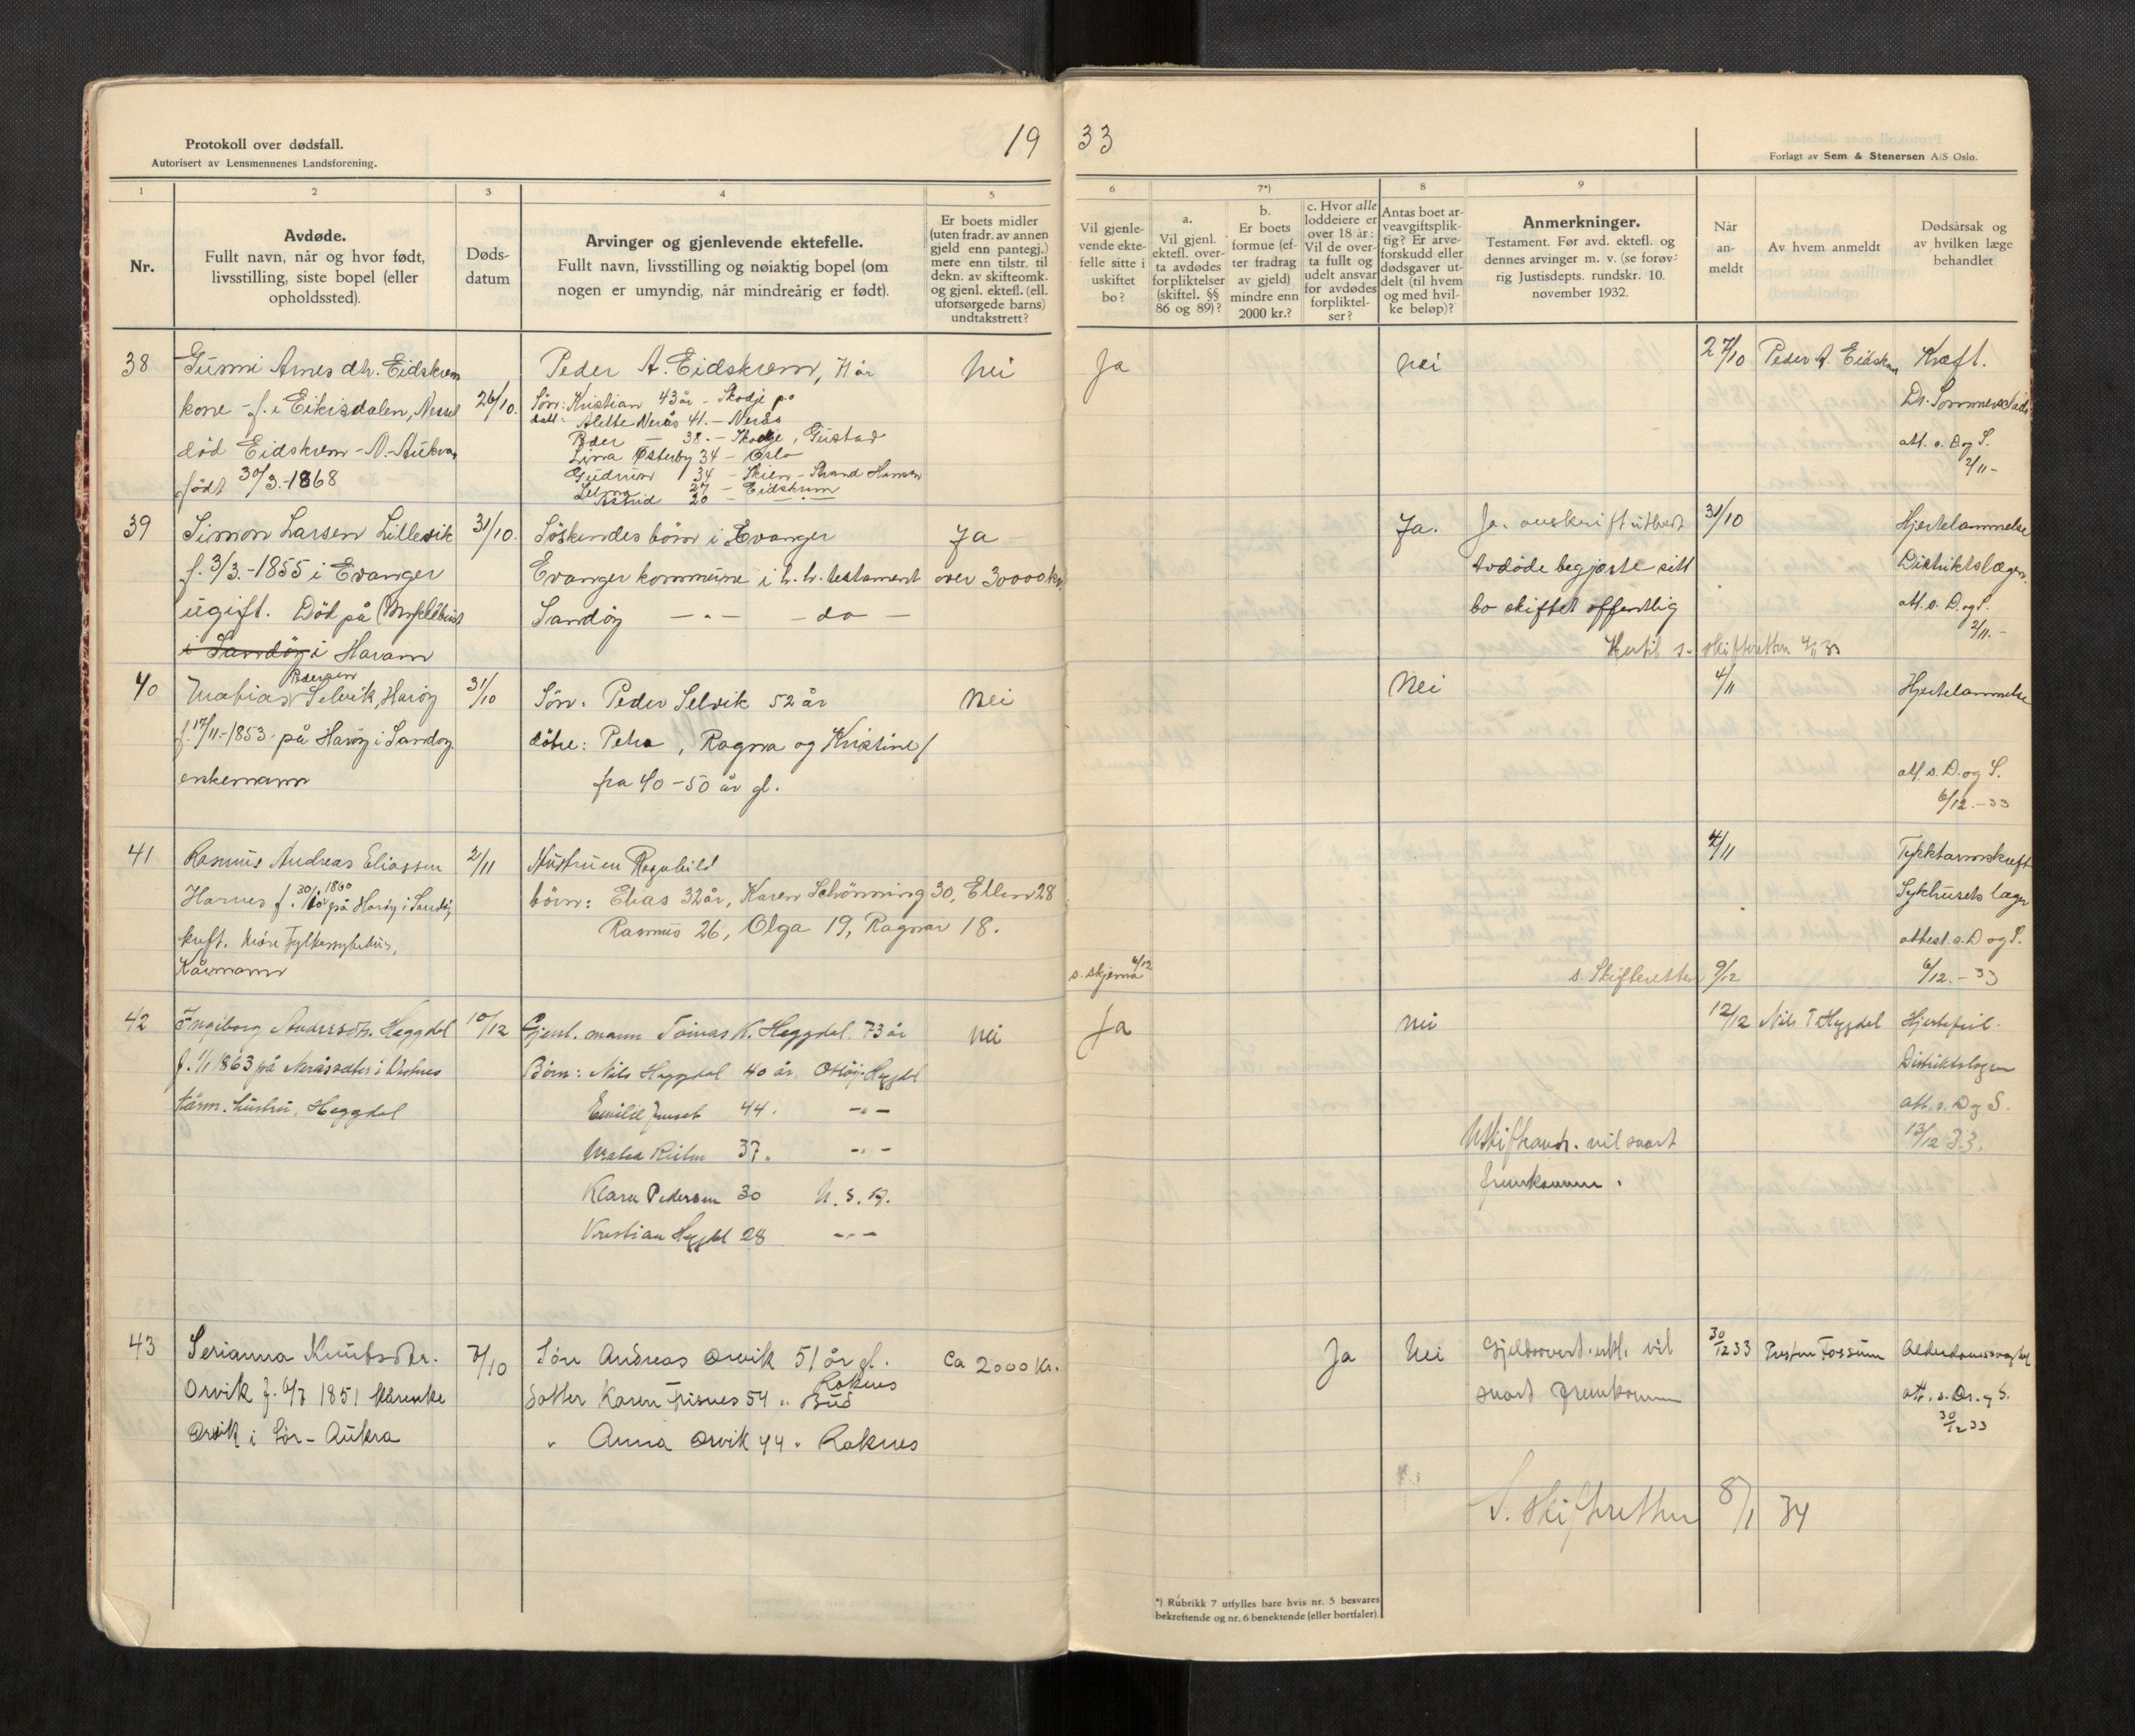 Protokoll over dødsfall.
Autorisert av Lensmennenes Landsforening.
19 33
Forlagt av Sem & Stenersen A/S Oslo.
1 2 3 4 5 6 7*) 8 9
Nr.
Avdøde.
Fullt navn, når og hvor født,
livsstilling, siste bopel (eller
opholdssted).
Døds-
datum
Arvinger og gjenlevende ektefelle.
Fullt navn, livsstilling og nøiaktig bopel (om
nogen er umyndig, når mindreårig er født).
Er boets midler
(uten fradr. av annen
gjeld enn pantegj.)
mere enn tilstr. til
dekn. av skifteomk.
og gjenl. ektef. (ell.
uforsørgede barns)
undtakstrett?
Vil gjenle-
vende ekte-
felle sitte i
uskiftet
bo?
a.
Vil gjenl.
ektefl. over-
ta avdødes
forpliktelser
(skiftel. §§
86 og 89)?
b.
Er boets
formue (ef-
ter fradrag
av gjeld)
mindre enn
2000 kr.?
c. Hvor alle
loddeiere er
over 18 år:
Vil de over-
ta fullt og
udelt ansvar
for avdødes
forpliktel-
ser?
Antas boet ar-
veavgiftsplik-
tig? Er arve-
forskudd eller
dødsgaver ut-
delt (til hvem
og med hvil-
ke beløp)?
Anmerkninger.
Testament. Før avd. ektefl. og
dennes arvinger m. v. (se forøv-
rig Justisdepts. rundskr. 10.
november 1932.
Når
an-
meldt
Av hvem anmeldt
Dødsårsak og
av hvilken læge
behandlet
38 Gunni Arnesdtr. Eidskrem Peder A. Eidskrem, 71 år Nei Ja Nei 27/10 Peder A. Eidskrem Kræft.
kone - f. i Eikisdalen, Nesset 26/10. Sønn: Kristian 43 år - Skodje p.o
datt: Alette Nerås 41 - Nerås
død Eidskrem - N.-Aukra Peder - 38 - Skodje, Gustad att. s. D. og S.
Lina Østerby 34 - Oslo 2/11 -
født 30/3.-1868 Gudrun 34 - Skien - Strand Hansen
Selma 27 - Eidskrem
Astrid 20
39 Simon Larsen Lillevik 31/10. Söskendes börn i Evanger Ja Ja. 31/10 Hjertelammelse
f. 3/3.-1855 i Evanger Evanger kommune i h.h. testament over 30000 kr. Avdöde begjærte sitt Distriktslægen.
ugift. Död på Sandöy - " - - do - bo skiftet offentlig att. s. D. og S.
i Sandöy i Haram 2/11. -
skifteretten
40 Pedersen
Mathias Selvik, Haröy 31/10 Sönn. Peder Selvik 52 år Nei Nei 4/11 Hjertelammelse
f. 17/11.-1853 på Haröy i Sandöy. dötre: Petra, Ragna og Kristine
enkemann fra 40 - 50 år gl. att. s. D. og S.
6/12. - 33
41 Rasmus Andreas Eliassen 2/11 Hustruen Ragnhild 4/11 Tykktarmskreft
Harnes f. 30/1 1860 på Haröy i Sandöy börn: Elias 32 år, Karen Schönning 30, Ellen 28 Sykhusets læge
kreft. Möre Fylkessykehus, Rasmus 26, Olga 19, Ragnar 18. attest. s. D og S.
Kårmann s. skjema 6/12 s. Skifteretten 9/12 6/12. - 33
42 Ingeborg Andersdtr. Heggdal 10/12 Gjenl. mann Tomas K. Heggdal. 73 år Nei Ja Nei 12/12 Nils T Heggdal Hjertefeil.
f. 1/1 1863 på Neråssæter i Vestnes Börn: Nils Heggdal 40 år. Heggdal Distriktslægen
kårm. hustru, Heggdal Emilie 44. - " - att. s. D og S.
37. - " - Uskifteandr. vil snart 13/12 33.
Klara Pedersen 30 U. S. A. fremkomme.
Kristian Heggdal 28 - " -
43 Serianna Knutsdtr. 7/10 Sön Andreas Orvik 51 år gl. Ca 2000 Kr. Ja Nei Gjeldsovert. erkl. vil 30/12 33 Presten Fossum Alderdomssvaghet
Røknes
Orvik f. 6/7 1851 kårenke Datter Karen Frisnes 54 " Bud snart fremkomme att. s. Dr. og S.
30/12 33
Orvik i Sör-Aukra " Anna Orvik 44 " Røknes
S. skifteretten 8/1 34
*) Rubrikk 7 utfylles bare hvis nr. 5 besvares
bekreftende og nr. 6 benektende (eller bortfaler).